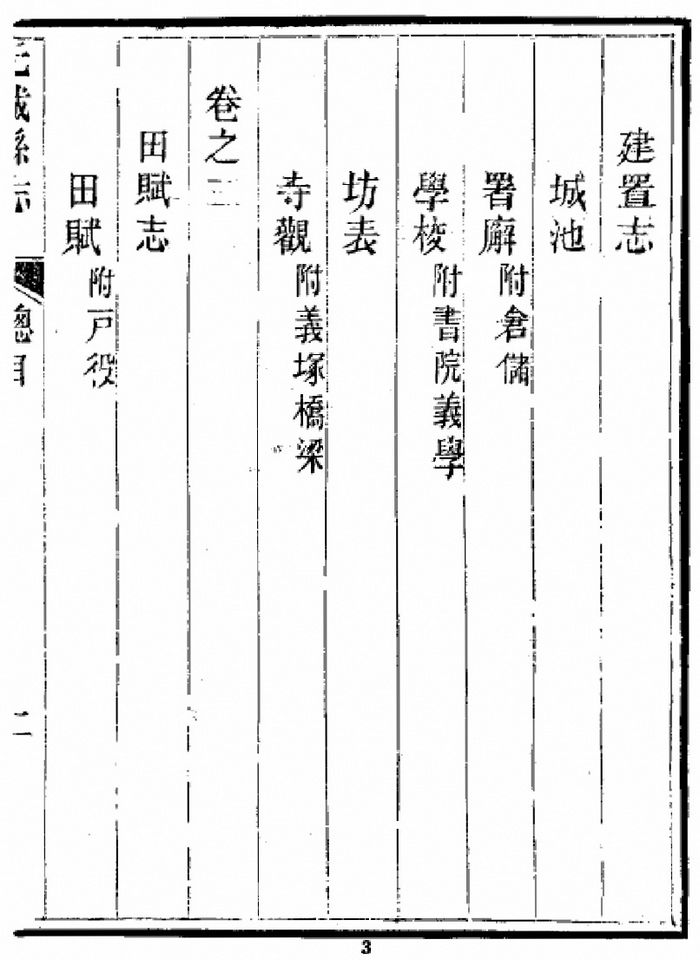 建置志
城池
署廨附倉儲
學校附書院義學
坊表
寺觀附義塚橋梁
卷之二
田賦志
田賦附戸役
元城縣志
總目
二
3